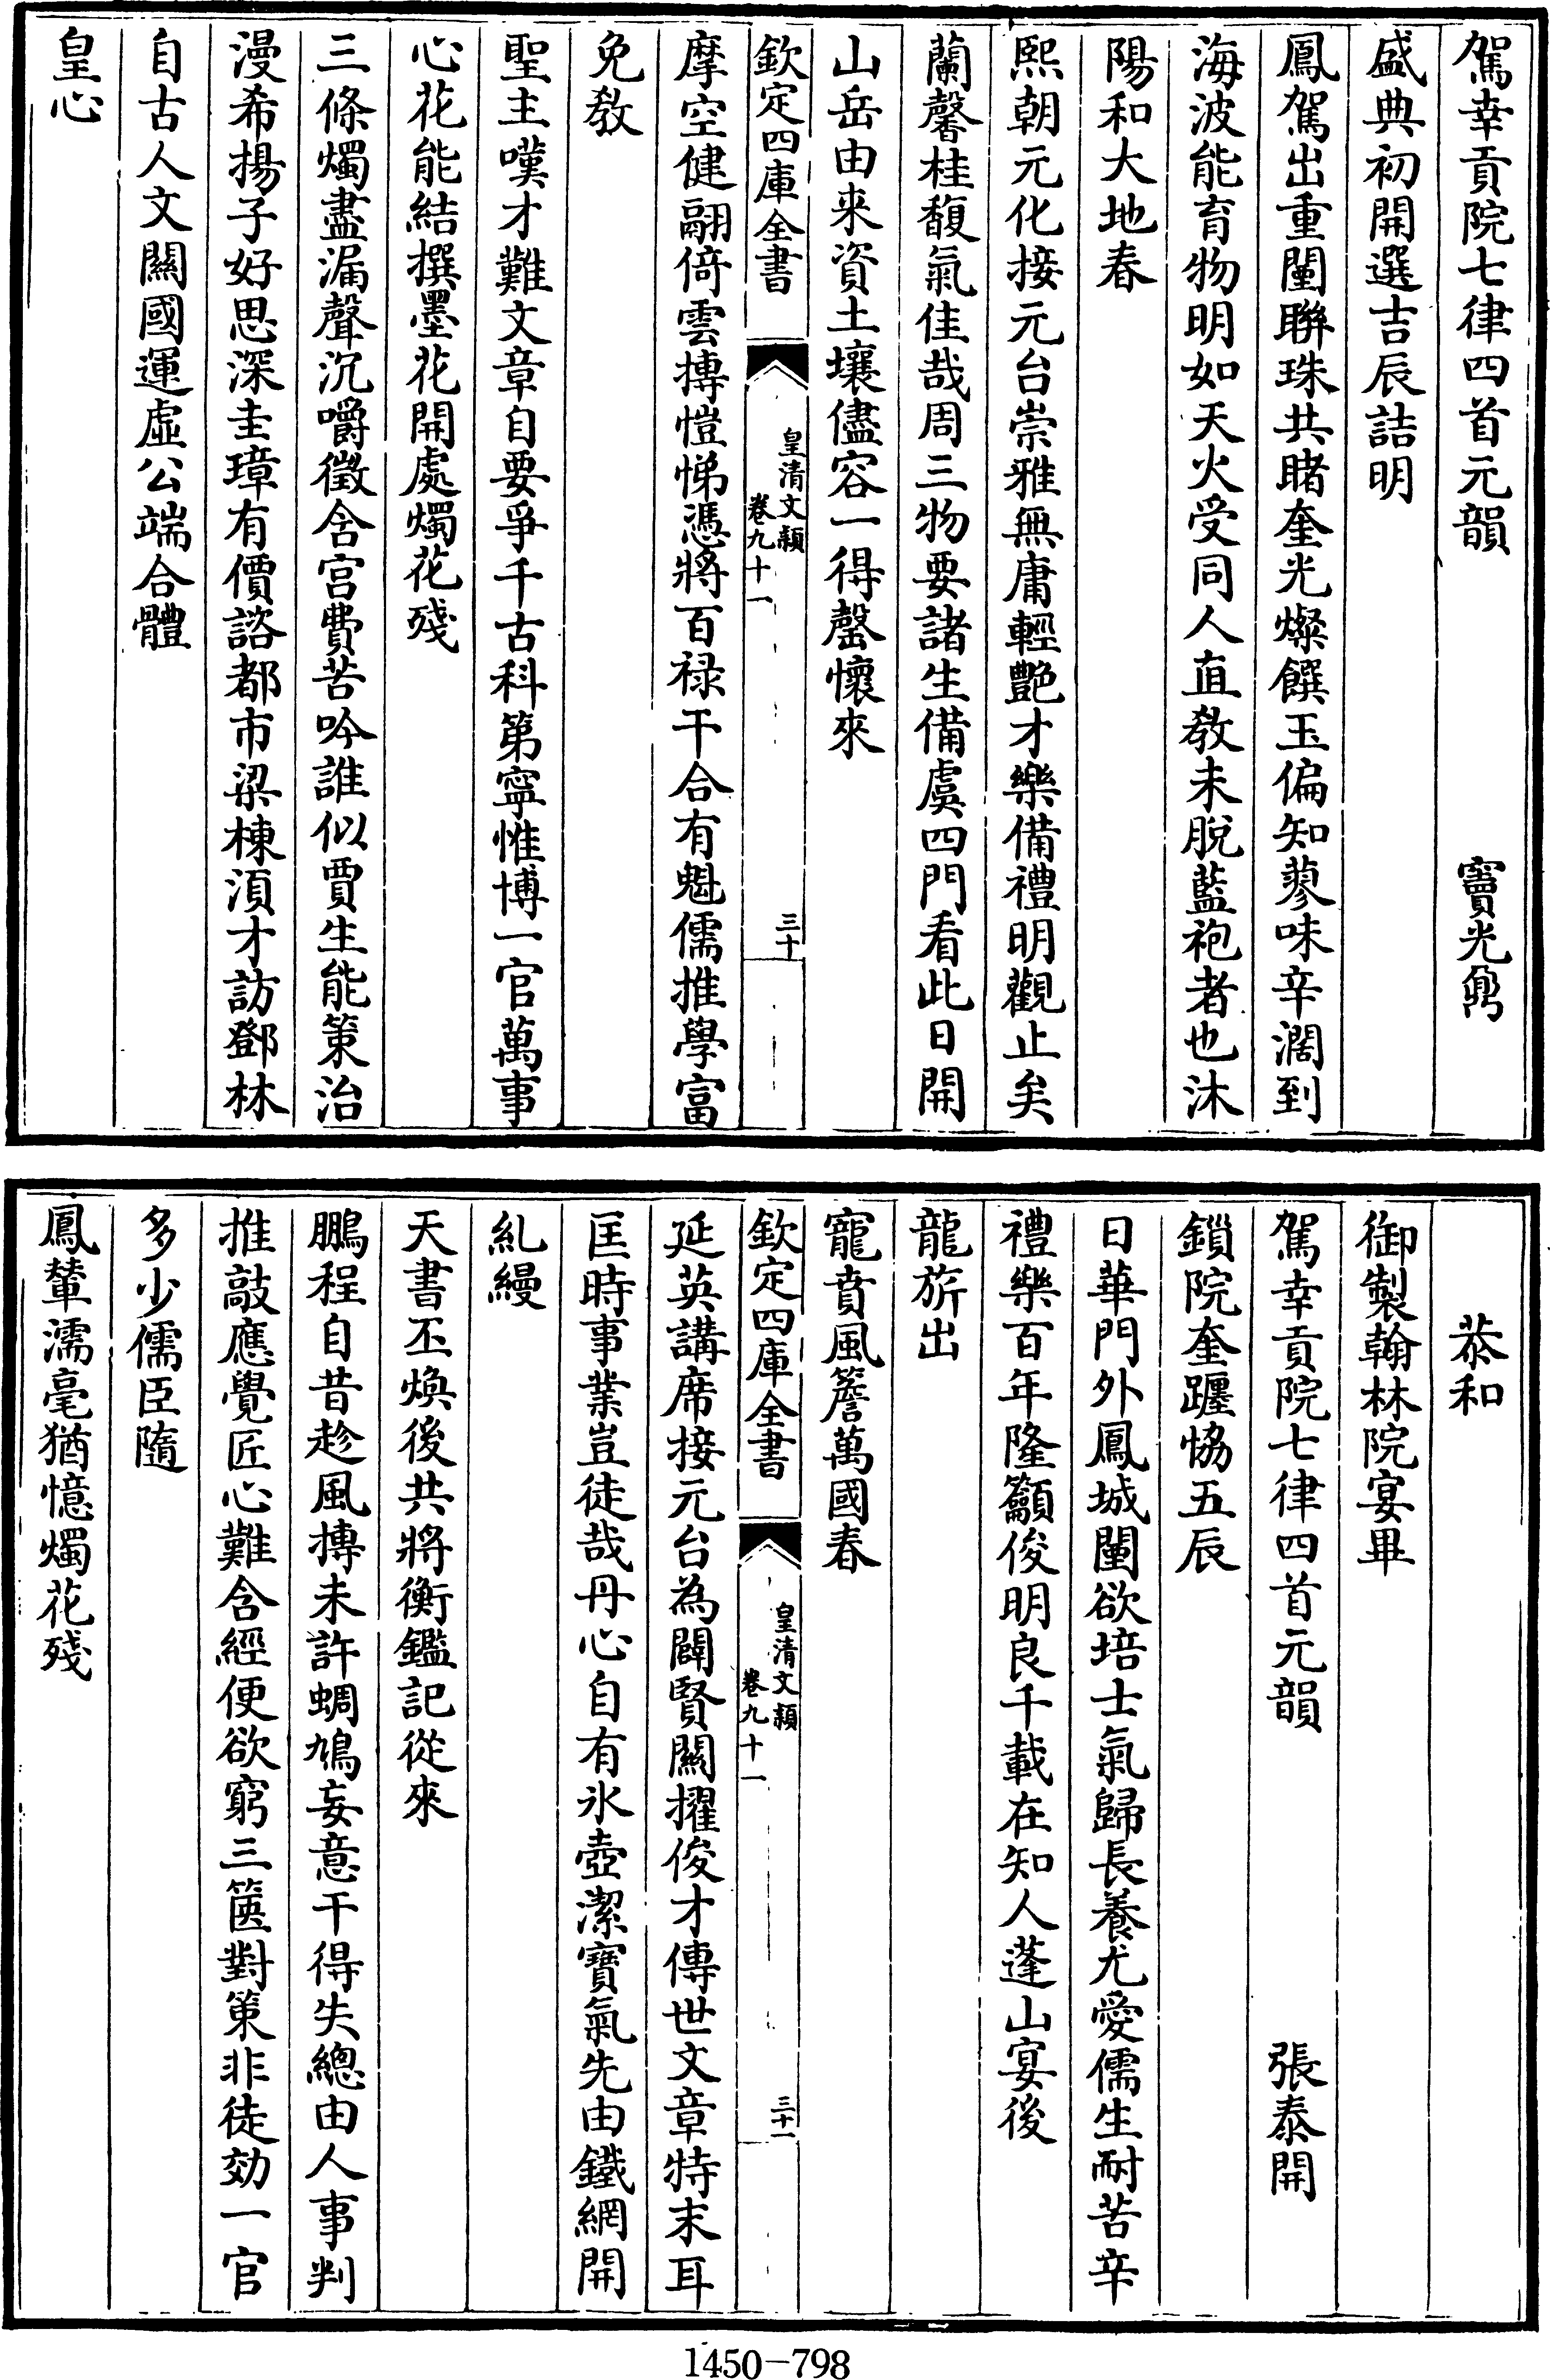 駕幸貢院七律四首元韻　竇光鼐
盛典初開選吉辰詰明
鳳駕出重闉聯珠共睹奎光燦饌玉偏知蓼味辛濶到
海波能育物明如天火受同人直教未脫藍袍者也沐
陽和大地春
熙朝元化接元台崇雅無庸輕艷才樂備禮明觀止矣
蘭馨桂馥氣佳哉周三物要諸生備虞四門看此日開
山岳由来資土壤儘容一得罄懷來
欽定四庫全書
皇清文穎
卷九十一
三十
摩空健翮倚雲摶愷悌憑將百禄干合有魁儒推學富
免教
聖主嘆才難文章自要爭千古科第寧惟博一官萬事
心花能結撰墨花開處燭花殘
三條燭盡漏聲沉嚼徵含宫費苦吟誰似賈生能策治
漫希揚子好思深圭璋有價諮都市梁棟湏才訪鄧林
自古人文關國運虛公端合體
皇心
恭和
御製翰林院宴畢
駕幸貢院七律四首元韻　張泰開
鎖院奎躔恊五辰
日華門外鳳城闉欲培士氣歸長養尤愛儒生耐苦辛
禮樂百年隆籲俊明良千載在知人蓬山宴後
龍旂出
寵賁風簷萬國春
欽定四庫全書
皇清文穎
卷九十一
三十一
延英講席接元台為闢賢關擢俊才傳世文章特末耳
匡時事業豈徒哉丹心自有氷壺潔寶氣先由鐵網開
糺縵
天書丕煥後共將衡鑑記從來
鵬程自昔趁風摶未許蜩鳩妄意干得失總由人事判
推敲應覺匠心難含經便欲窮三篋對策非徒効一官
多少儒臣隨
鳳輦濡毫猶憶燭花殘
1450-798